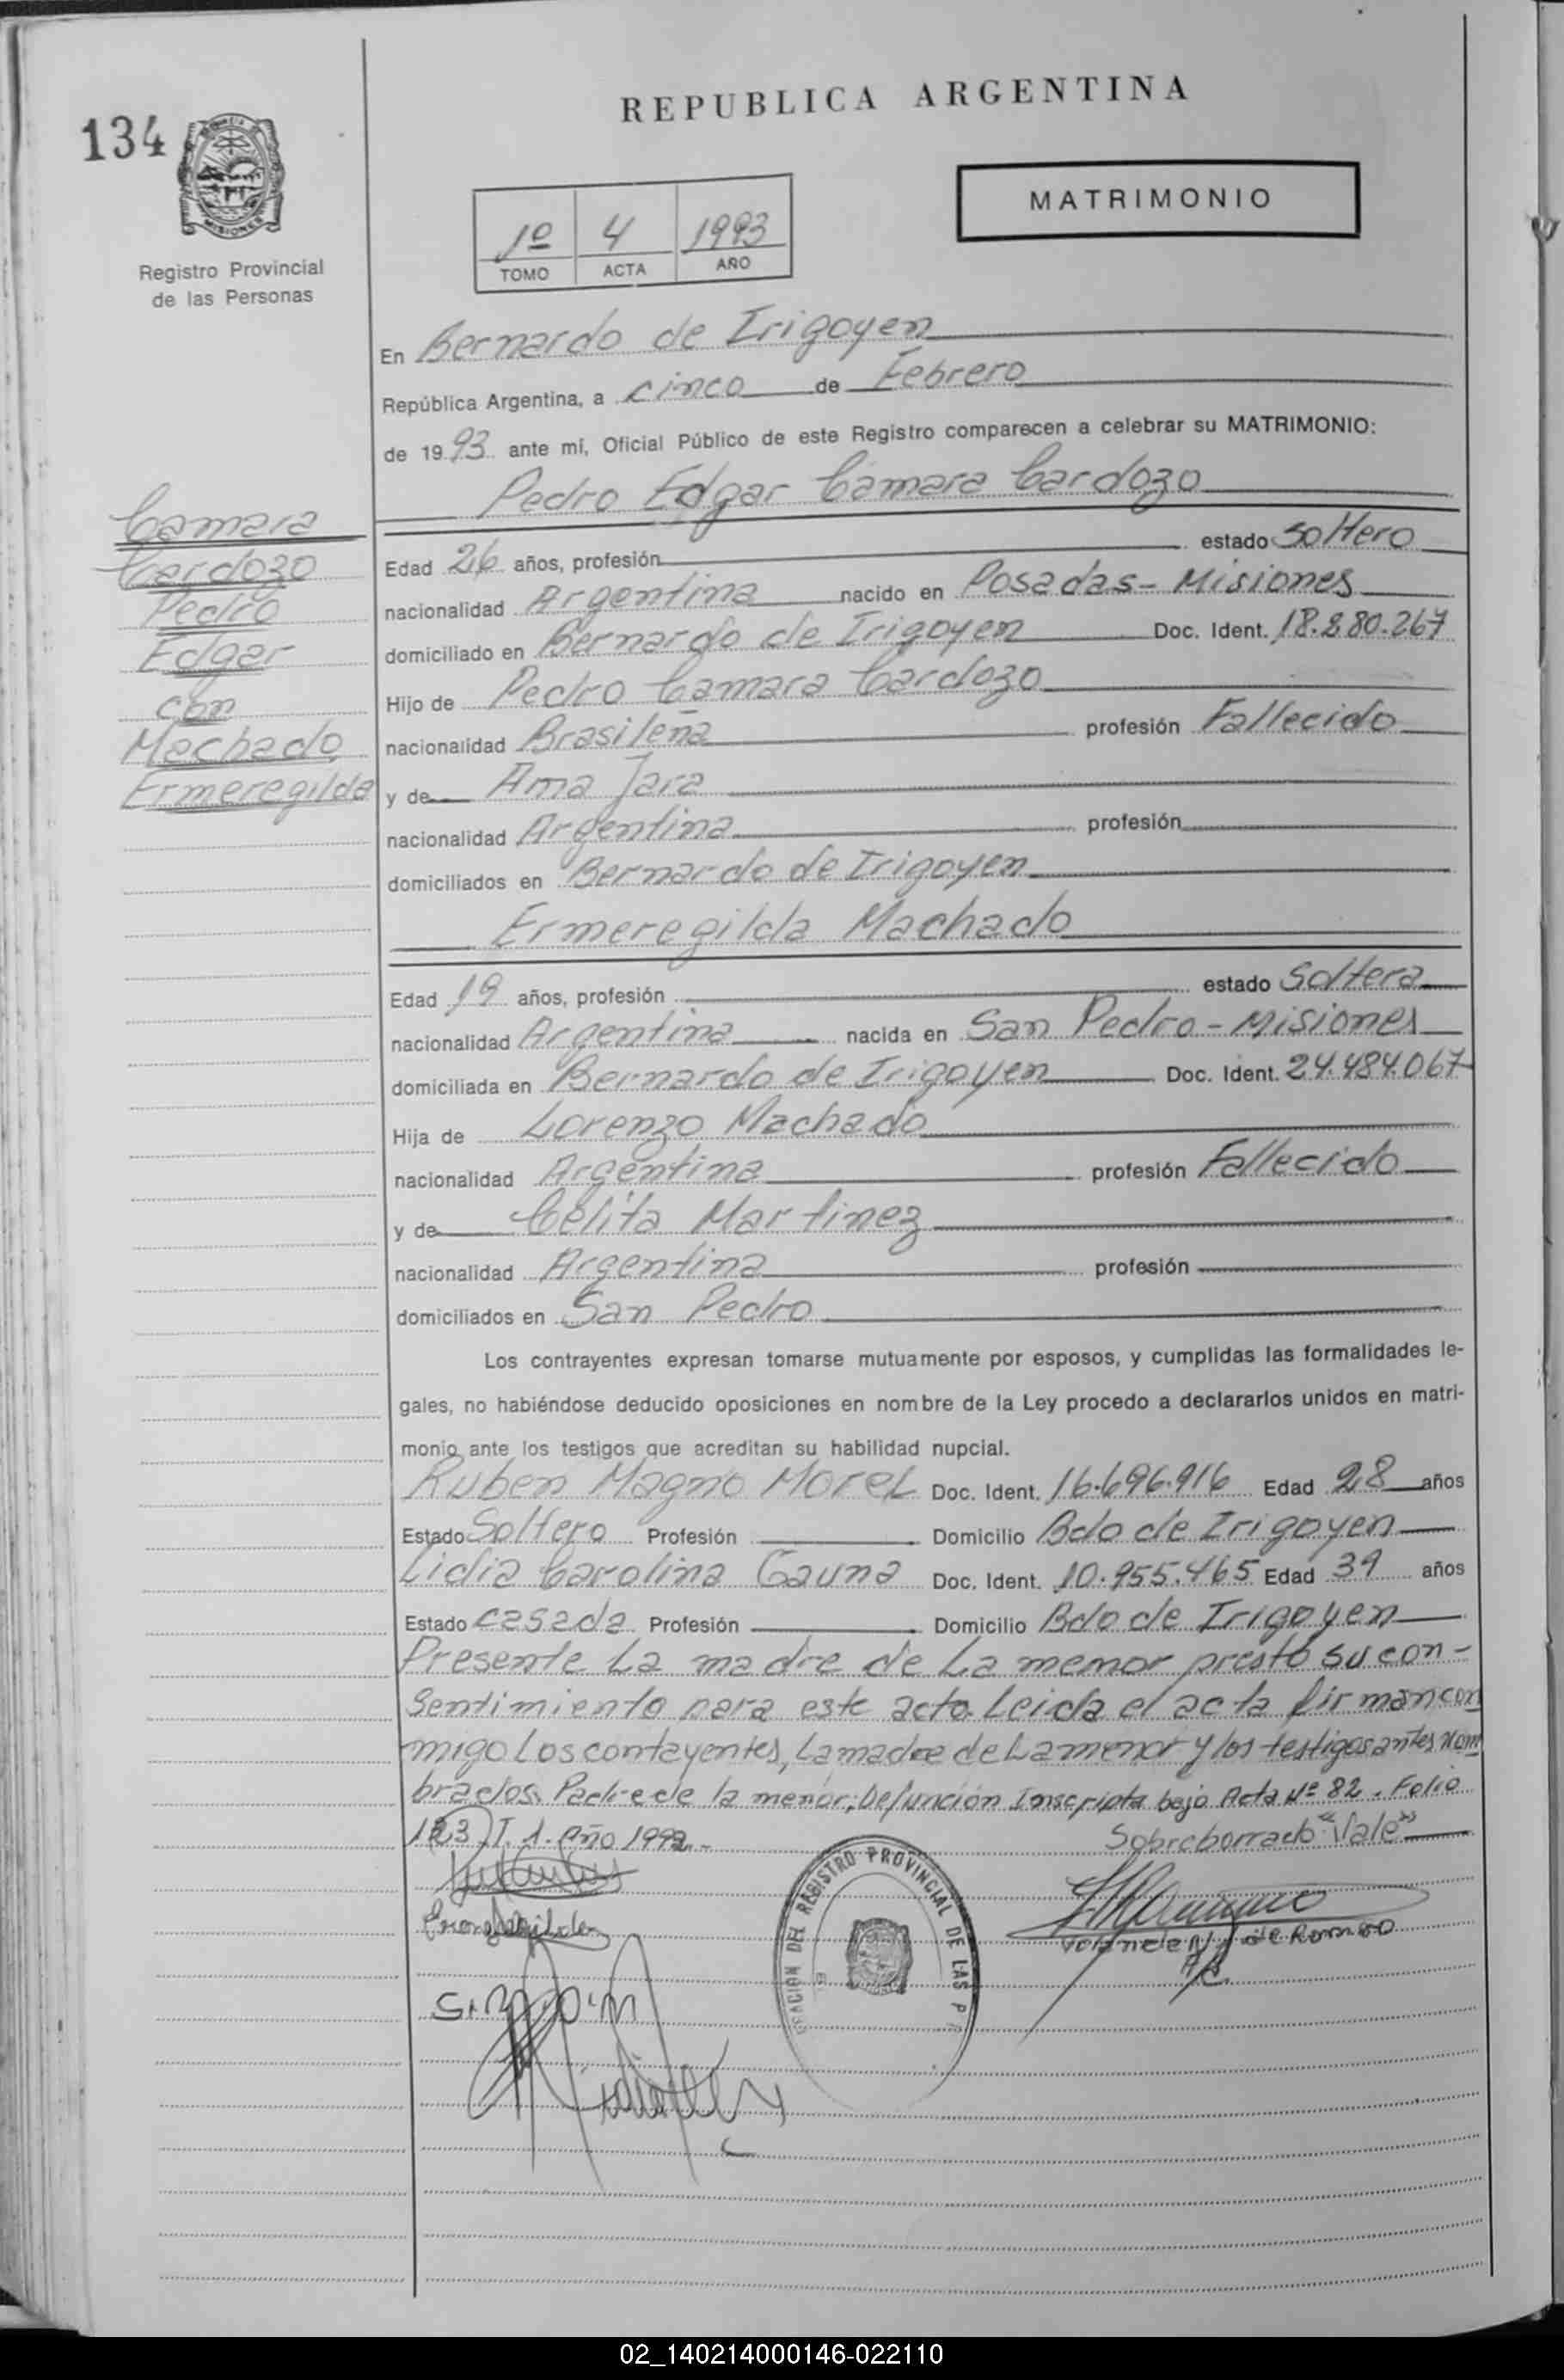 REPUBLICA ARGENTINA
134
MISIONES
Registro Provincial
de las Personas
MATRIMONIO
1º 4 1993
TOMO ACTA AÑO
En Bernardo de Irigoyen
República Argentina, a cinco de Febrero
de 1993 ante mí, Oficial Público de este Registro comparecen a celebrar su MATRIMONIO:
Pedro Edgar Camara Cardozo
Camara
Cardozo
Pedro
Edgar
con
Machado
Ermeregilda
Edad 26 años, profesión estado soltero
nacionalidad Argentina nacido en Posadas - Misiones
domiciliado en Bernardo de Irigoyen Doc. Ident. 18.880.267
Hijo de Pedro Camara Cardozo
nacionalidad Brasileña profesión Fallecido
y de Ama Jara
nacionalidad Argentina profesión
domiciliados en Bernardo de Irigoyen
Ermeregilda Machado
Edad 19 años, profesión estado Soltera
nacionalidad Argentina nacida en San Pedro - Misiones
domiciliada en Bernardo de Irigoyen Doc. Ident. 24.484.067
Hija de Lorenzo Machado
nacionalidad Argentina profesión Fallecido
y de Celita Martinez
nacionalidad Argentina profesión
domiciliados en San Pedro
Los contrayentes expresan tomarse mutuamente por esposos, y cumplidas las formalidades le-
gales, no habiéndose deducido oposiciones en nombre de la Ley procedo a declararlos unidos en matri-
monio ante los testigos que acreditan su habilidad nupcial.
Ruben Magno Morel Doc. Ident. 16.696.916 Edad 28 años
Estado Soltero Profesión Domicilio Bdo de Irigoyen
Lidia Carolina Gauna Doc. Ident. 10.955.465 Edad 39 años
Estado casada Profesión Domicilio Bdo de Irigoyen
Presente La madre de La menor prestó su con-
sentimiento para este acto. Leida el acta firman con
migo Los contayentes, La madre de La menor y los testigos antes Nom
brados. Padre de la menor; Defunción Inscripta bajo Acta Nº 82. Folio
183 T. 1. Año 1992.- Sobreborrado "Vale"
REGISTRO PROVINCIAL DE LAS P
02_140214000146-022110